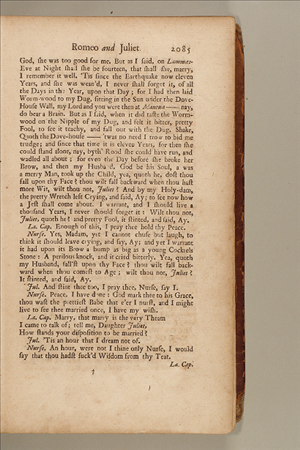 Romeo and Juliet. 2085
God, she was too good for me. But as I said, on Lammas-
Eve at Night shall she be fourteen, that shall she, marry,
I remember it well. 'Tis since the Earthquake now eleven
Years, and she was wean'd, I never shall forget it, of all
the Days in the Year, upon that Day; for I had then laid
Worm-wood to my Dug, sitting in the Sun under the Dove-
House Wall, my Lord and you were then at Mantua —— nay,
do bear a Brain. But as I said, when it did taste the Worm-
wood on the Nipple of my Dug, and felt it bitter, pretty
Fool, to see it teachy, and fall out with the Dug. Shake,
Quoth the Dove-house —— 'twas no need I trow to bid me
trudge; and since that time it is eleven Years, for then she
could stand alone, nay, byth' Rood she could have run, and
wadled all about; for even the Day before she broke her
Brow, and then my Husband, God be his soul, a was
a merry Man, took up the Child, yea, quoth he, dost thou
fall upon thy Face? thou wilt fall backward when thou hast
more Wit, wilt thou not, Julier? And by my Holy-dam,
the pretty Wretch left Crying, and said, Ay; to see now how
a Jest shall come about. I warrant, and I should live a
thousand Years, I never should forget it: Wilt thou not,
Juliet, quoth he? and pretty Fool, it stinted, and said, Ay.
La. Cap. Enough of this, I pray thee hold thy Peace.
Nurse. Yes, Madam, yet I cannot chuse but laugh, to
think it should leave crying, and say, Ay; and yet I warrant
it had upon its Brow a bump as big as a young Cockrels
Stone: A perilous knock, and it cried bitterly. Yea, quoth
my Husband, fall'st upon thy Face? thou wilt fall back-
ward when thou comest to Age; wilt thou not, Juliet?
It stinted, and said, Ay.
Jul. And stint thee too, I pray thee, Nurse, say I.
Nurse. Peace, I have done: God mark thee to his Grace,
thou wast the prettiest Babe that e'er I nurst, and I might
live to see thee married once, I have my wish.
La. Cap. Marry, that marry is the very Theam
I came to talk of; tell me, Daughter Juliet,
How stands your disposition to be married?
Jul. 'Tis an hour that I dream not of.
Nurse. An hour, were not I thine only Nurse, I would
say that thou hadst suck'd Wisdom from thy Teat.
La. Cap.